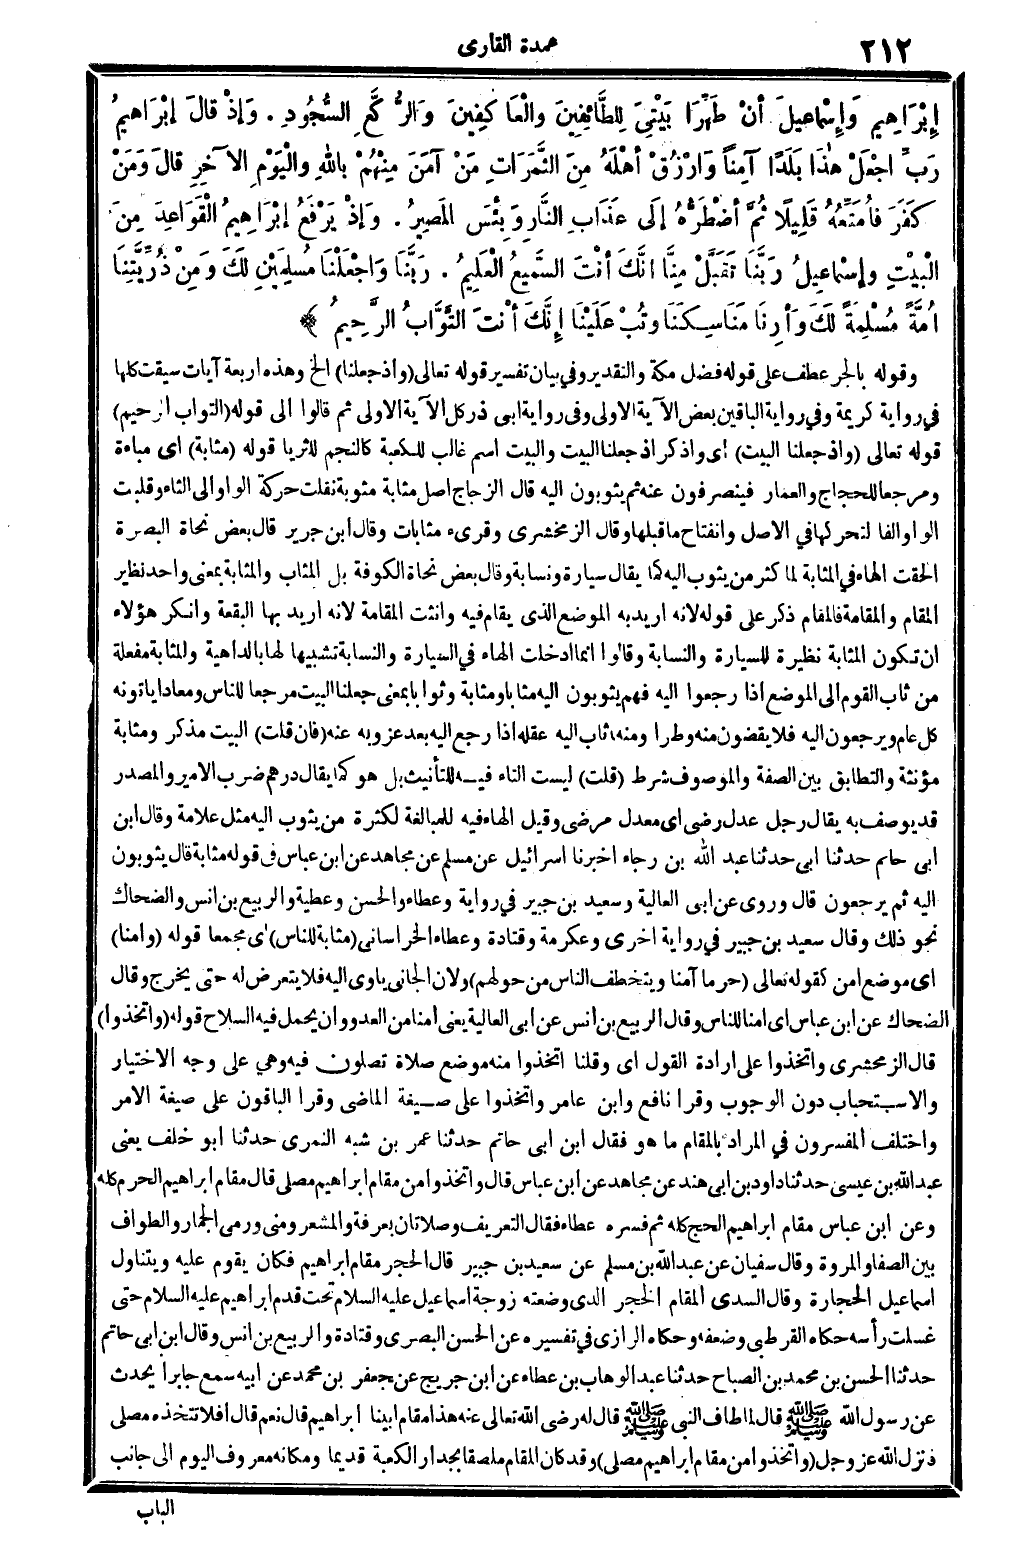 عمدة القارى ٢١٢
إِبْرَاهِيم وَإِسْمَاعِيلَ أنْ طَهِّرَا بَيْتِيَ لِلطَّائِفِينَ والْعَاكِفِينَ وَالرُّكَّعِ السُّجُودِ . وَإذْ قالَ إبْرَاهِيمُ
رَبِّ اجْعَلْ هٰذَا بَلَدًا آمِناً وَارْزُقْ أهْلَهُ مِنَ الثَّمَرَاتِ مَنْ آمَنَ مِنْهُمْ باللهِ والْيَوْمِ الآخرِ قالَ وَمَنْ
كَفَرَ فأُمَتِّعُهُ قَلِيلًا ثُمَّ أضْطَرُّهُ إلَى عَذَابِ النَّارِ وَبِئْسَ المَصِيرُ . وَإذْ يَرْفَعُ إبْرَاهِيمُ الْقَوَاعِدَ مِنَ
الْبَيْتِ وإسْمَاعِيلُ رَبَّنَا تَقَبَّلْ مِنَّا انَّكَ أنْتَ السَّمِيعُ الْعَلِيمُ . رَبَّنَا وَاجْعَلْنَا مُسلِمَيْنِ لكَ وَمِنْ ذُرِّيَّتِنَا
أُمَّةً مُسْلِمَةً لكَ وَأرِنَا مَنَاسِكَنَا وتُبْ عَلَيْنَا إنَّكَ أنْتَ التَّوَّابُ الرَّحِيمُ ﴾
وقوله بالجر عطف على قوله فضل مكة والتقدير وفي بيان تفسير قوله تعالى (واذ جعلنا) الخ وهذه اربعة آيات سيقت كلها
في رواية كريمة وفي رواية الباقين بعض الآية الاولى وفي رواية ابى ذر كل الآية الاولى ثم قالوا الى قوله (التواب الرحيم)
قوله تعالى (واذ جعلنا البيت) أى واذكر اذ جعلنا البيت والبيت اسم غالب للكعبة كالنجم للثريا قوله (مثابة) اى مباءة
ومرجعا للحجاج والعمار فينصرفون عنه ثم يثوبون اليه قال الزجاج اصل مثابة مثوبة نقلت حركة الواو الى الثاء وقلبت
الواو الفا لتحركها في الاصل وانفتاح ما قبلها وقال الزمخشرى وقرىء مثابات وقال ابن جرير قال بعض نحاة البصرة
الحقت الهاء في المثابة لما كثر من يثوب اليه كما يقال سيارة ونسابة وقال بعض نحاة الكوفة بل المثاب والمثابة بمعنى واحد نظير
المقام والمقامة فالمقام ذكر على قوله لانه اريد به الموضع الذى يقام فيه وانثت المقامة لانه اريد بها البقعة وانكر هؤلاء
ان تكون المثابة نظيرة للسيارة والنسابة وقالوا انما ادخلت الهاء في السيارة والنسابة تشبيها لها بالداهية والمثابة مفعلة
من ثاب القوم الى الموضع اذا رجعوا اليه فهم يثوبون اليه مثابا ومثابة وثوابا بمعنى جعلنا البيت مرجعا للناس ومعاذا ياتونه
كل عام ويرجعون اليه فلا يقضون منه وطرا ومنه اثاب اليه عقله اذا رجع اليه بعد عزوبه عنه (فان قلت) البيت مذكر ومثابة
مؤنثة والتطابق بين الصفة والموصوف شرط (قلت) ليست التاء فيه للتأنيث بل هو كما يقال درهم ضرب الامير والمصدر
قد يوصف به يقال رجل عدل رضى اى معدل مرضى وقيل الهاء فيه للمبالغة لكثرة من يثوب اليه مثل علامة وقال ابن
ابى حاتم حدثنا ابى حدثنا عبد الله بن رجاء اخبرنا اسرائيل عن مسلم عن مجاهد عن ابن عباس في قوله مثابة قال يثوبون
اليه ثم يرجعون قال وروى عن ابى العالية وسعيد بن جبير في رواية وعطاء والحسن وعطية والربيع بن انس والضحاك
نحو ذلك وقال سعيد بن جبير في رواية اخرى وعكرمة وقتادة وعطاء الخراسانى (مثابة للناس) اى مجمعا قوله (وامنا)
اى موضع امن كقوله تعالى (حرما آمنا ويتخطف الناس من حولهم) ولان الجانى ياوى اليه فلا يتعرض له حتى يخرج وقال
الضحاك عن ابن عباس اى امنا للناس وقال الربيع بن أنس عن أبى العالية يعنى أمنا من العدو وان يحمل فيه السلاح قوله (واتخذوا)
قال الزمخشرى واتخذوا على ارادة القول اى وقلنا اتخذوا منه موضع صلاة تصلون فيه وهي على وجه الاختيار
والاستحباب دون الوجوب وقرا نافع وابن عامر واتخذوا على صيغة الماضى وقرا الباقون على صيغة الامر
واختلف المفسرون في المراد بالمقام ما هو فقال ابن ابى حاتم حدثنا عمر بن شبه النمرى حدثنا ابو خلف يعنى
عبد الله بن عيسى حدثنا داود بن ابى هند عن مجاهد عن ابن عباس قال واتخذوا من مقام ابراهيم مصلى قال مقام ابراهيم الحرم كله
وعن ابن عباس مقام ابراهيم الحج كله ثم فسره عطاء فقال التعريف وصلاتان بعرفة والمشعر ومنى ورمى الجمار والطواف
بين الصفا والمروة وقال سفيان عن عبد الله بن مسلم عن سعيد بن جبير قال الحجر مقام ابراهيم فكان يقوم عليه ويتناول
اسماعيل الحجارة وقال السدى المقام الحجر الذى وضعته زوجة اسماعيل عليه السلام تحت قدم ابراهيم عليه السلام حتى
غسلت رأسه حكاه القرطبى وضعفه وحكاه الرازى في تفسيره عن الحسن البصرى وقتادة والربيع بن انس وقال ابن ابى حاتم
حدثنا الحسن بن محمد بن الصباح حدثنا عبد الوهاب بن عطاء عن ابن جريج عن جعفر بن محمد عن ابيه سمع جابراً يحدث
عن رسول الله ﷺ قال لما طاف النبى ﷺ قال له رضى الله تعالى عنه هذا مقام ابينا ابراهيم قال نعم قال أفلا تتخذه مصلى
فنزل الله عز وجل (واتخذوا من مقام ابراهيم مصلى) وقد كان المقام ملصقا بجدار الكعبة قديما ومكانه معروف اليوم الى جانب
الباب